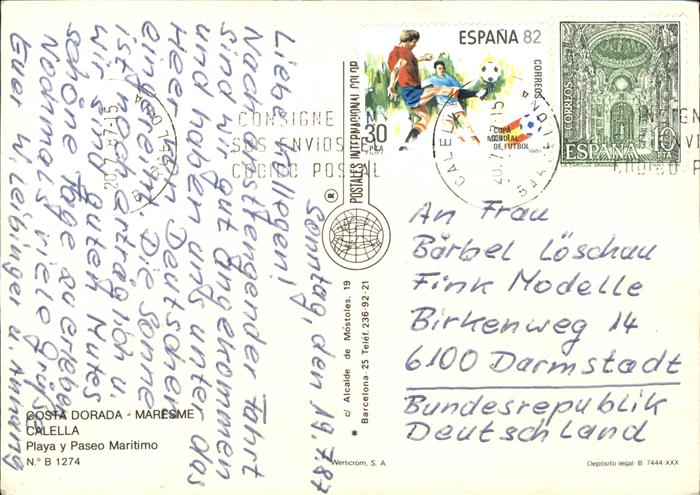 Sonntag, den 19.7.87
Liebe Kollegen!
Nach anstrengender Fahrt
sind wir gut angekommen
und haben uns unter das
Heer von Deutschen
eingereiht. Die Sonne
ist noch erträglich u.
wir sind guten Mutes
schöne Tage zu erleben
Nochmals viele Grüße
Euer W. Leibinger u. Anhang
An Frau
Bärbel Löschau
Fink Modelle
Birkenweg 14
6100 Darmstadt
Bundesrepublik
Deutschland
ESPAÑA 82
CORREOS
30
PTA
COPA
MUNDIAL
DE FUTBOL
1981
CORREOS
ESPAÑA
10
PTA
LA CARTUJA, GRANADA
CONSIGNE EN
SUS ENVIOS EL
CODIGO POSTAL
CALELLA
20.7.87-15
BARCELONA
20.7.87-15
POSTALES INTERNACIONAL COLOR
®
c/ Alcalde de Móstoles, 19
* Barcelona - 25 Teléf. 236-92-21
COSTA DORADA - MARESME
CALELLA
Playa y Paseo Marítimo
N.º B 1274
Werticrom, S. A.
Depósito legal: B. 7444-XXX